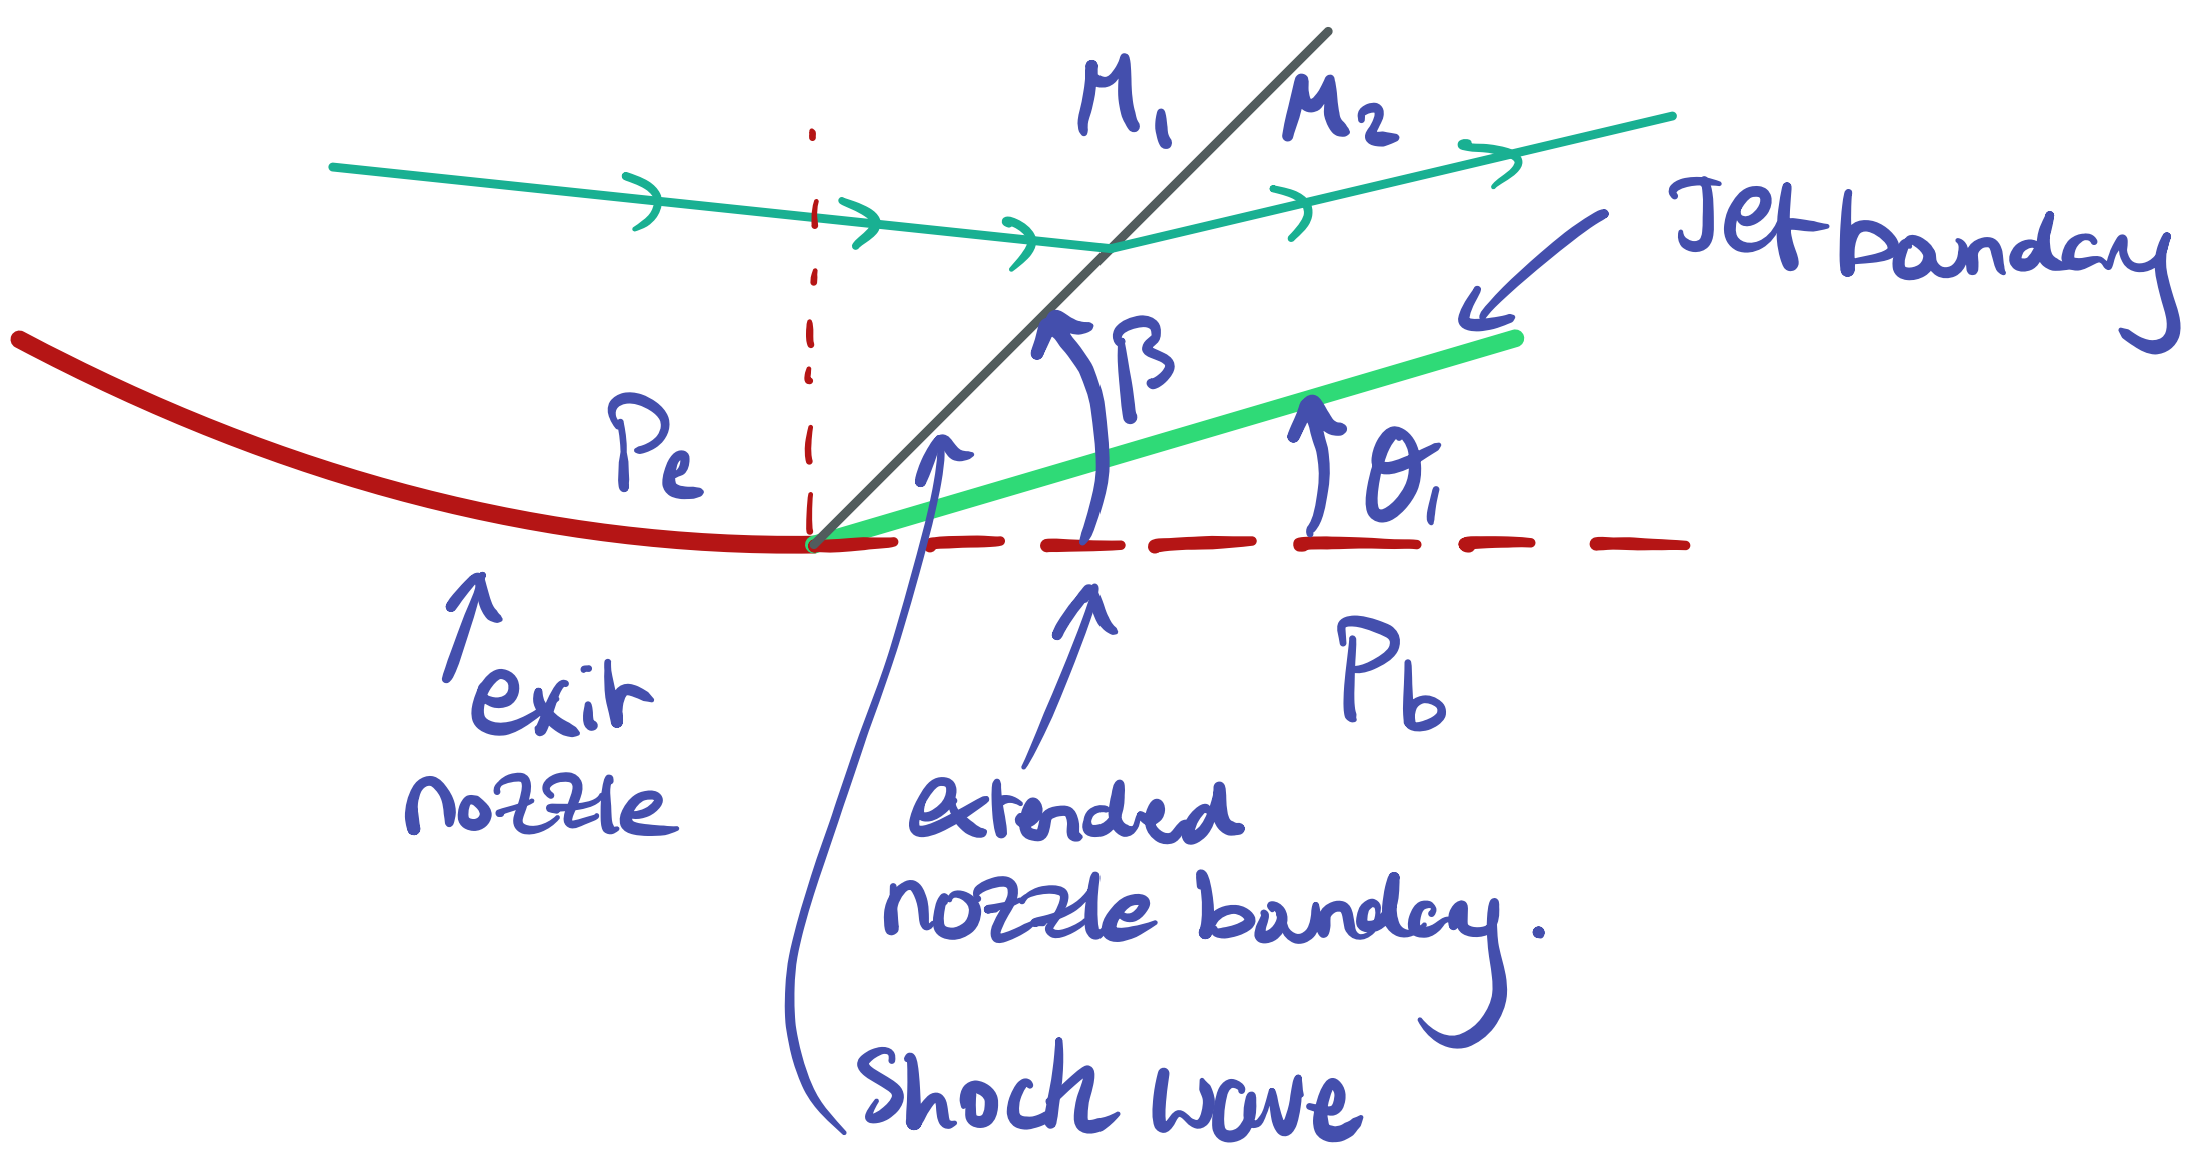 M₁ M₂
Jet bounday
β
Pe
θ₁
Pb
exit
nozzle
extended
nozzle bounday.
Shock wave